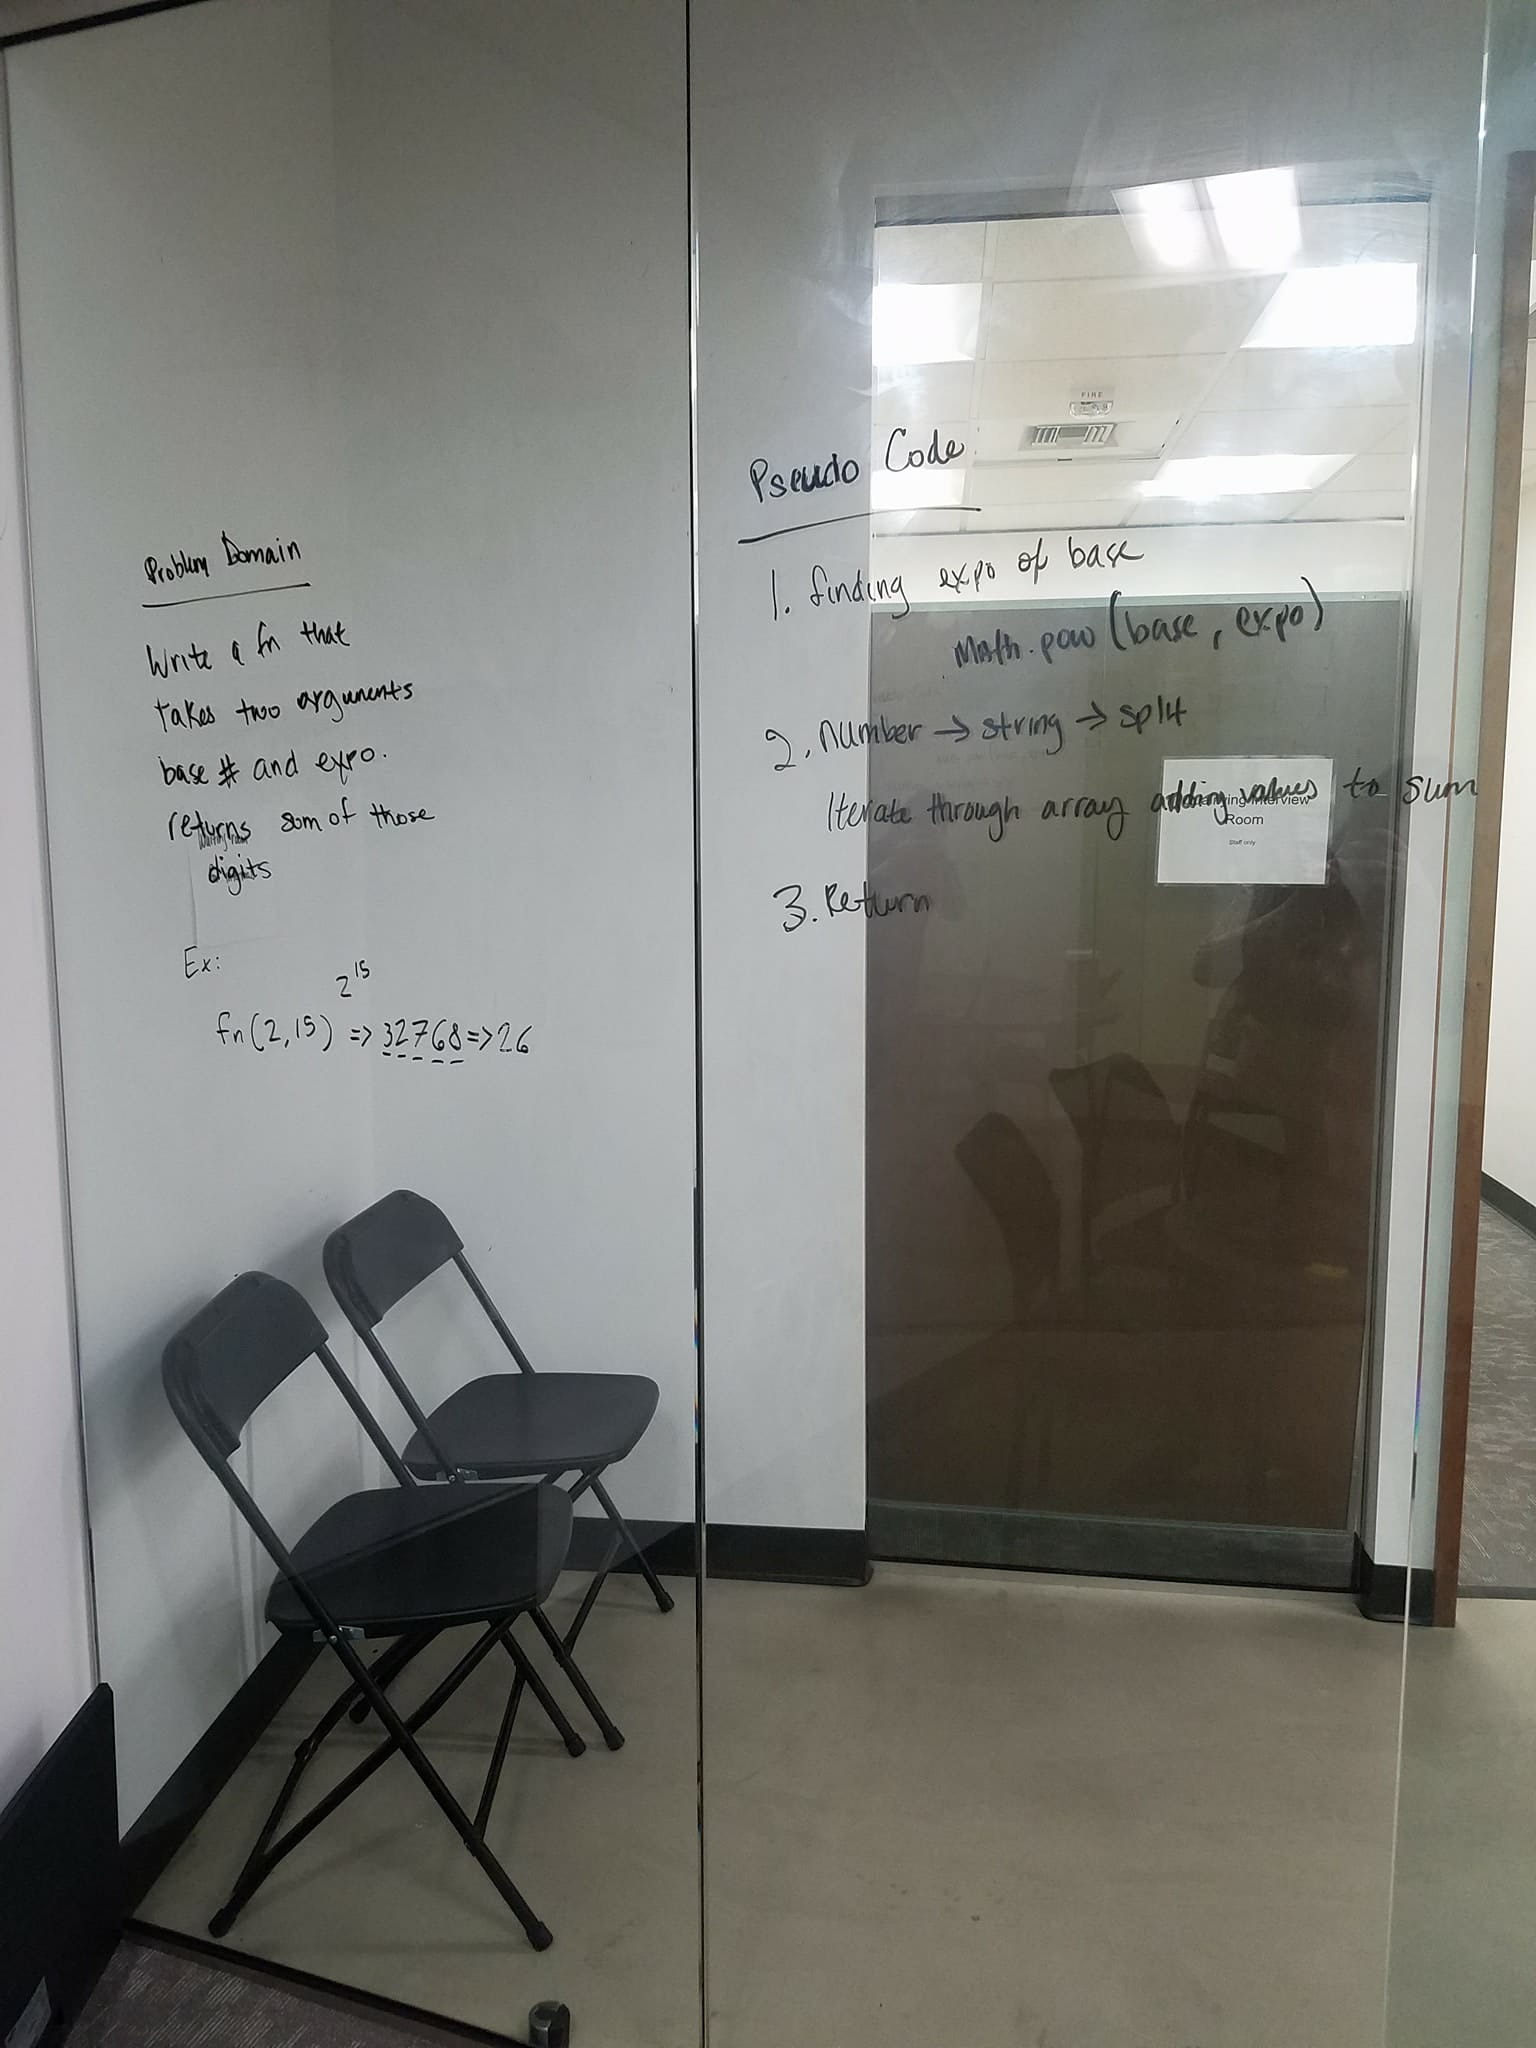 Problem Domain
Write a fn that
takes two arguments
base # and expo.
returns sum of those
digits
Ex:
2^15
fn(2,15) => 32768 => 26
Pseudo Code
1. finding expo of base
Math.pow(base, expo)
2. number → string → split
Iterate through array adding values to sum
3. Return
FIRE
Interview
Room
Staff only
Waiting room